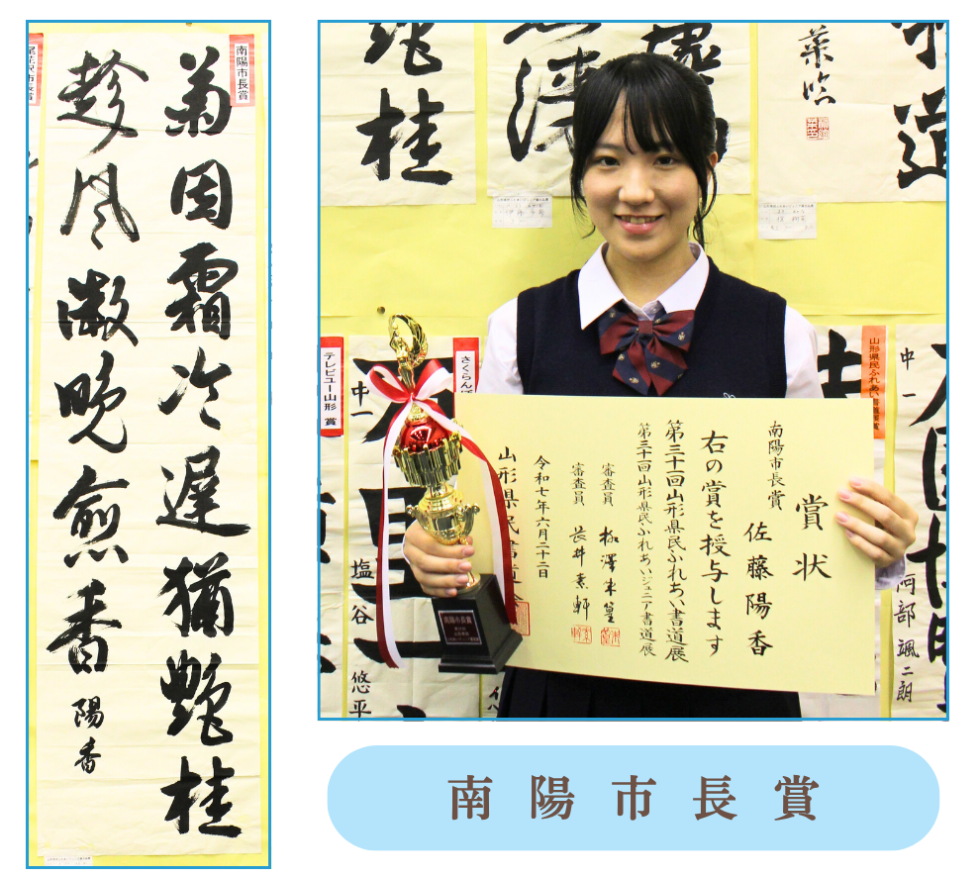 南陽市長賞
菊因霜冷遲猶艷桂
趁風微晩愈香
陽香
艷桂
テレビユー山形賞
さくらんぼ
中一
塩谷悠平
中一
阿部颯二朗
賞状
南陽市長賞
佐藤陽香
右の賞を授与します
第三十一回山形県民ふれあい書道展
第三十一回山形県民ふれあいジュニア書道展
審査員
審査員 長井素軒
令和七年六月二十二日
山形県民書道会
南陽市長賞
南陽市長賞